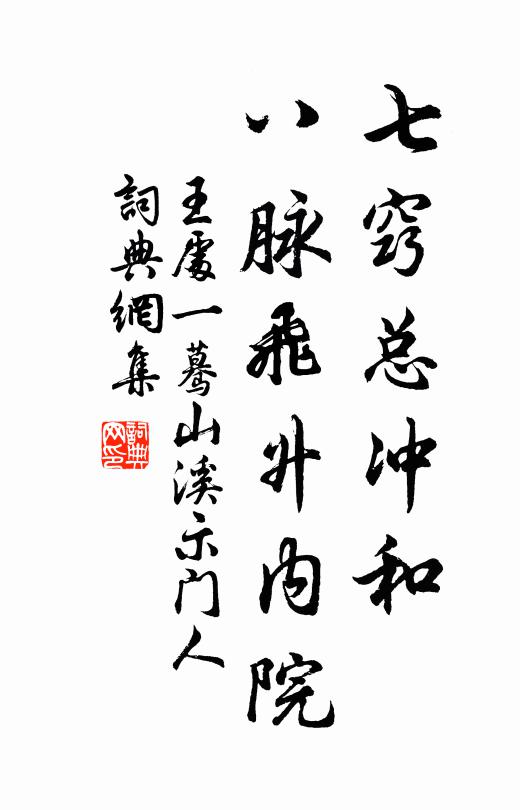 七窍总冲和
八脉飛升内院
王處一驀山溪示门人
詞典網集
詞典网印